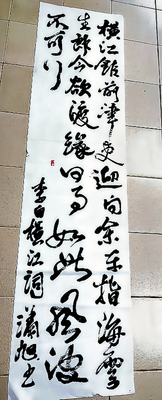 横江館前津吏迎向余东指海雲
生郎今欲渡緣何事如此風波
不可行
李白横江詞 旭书